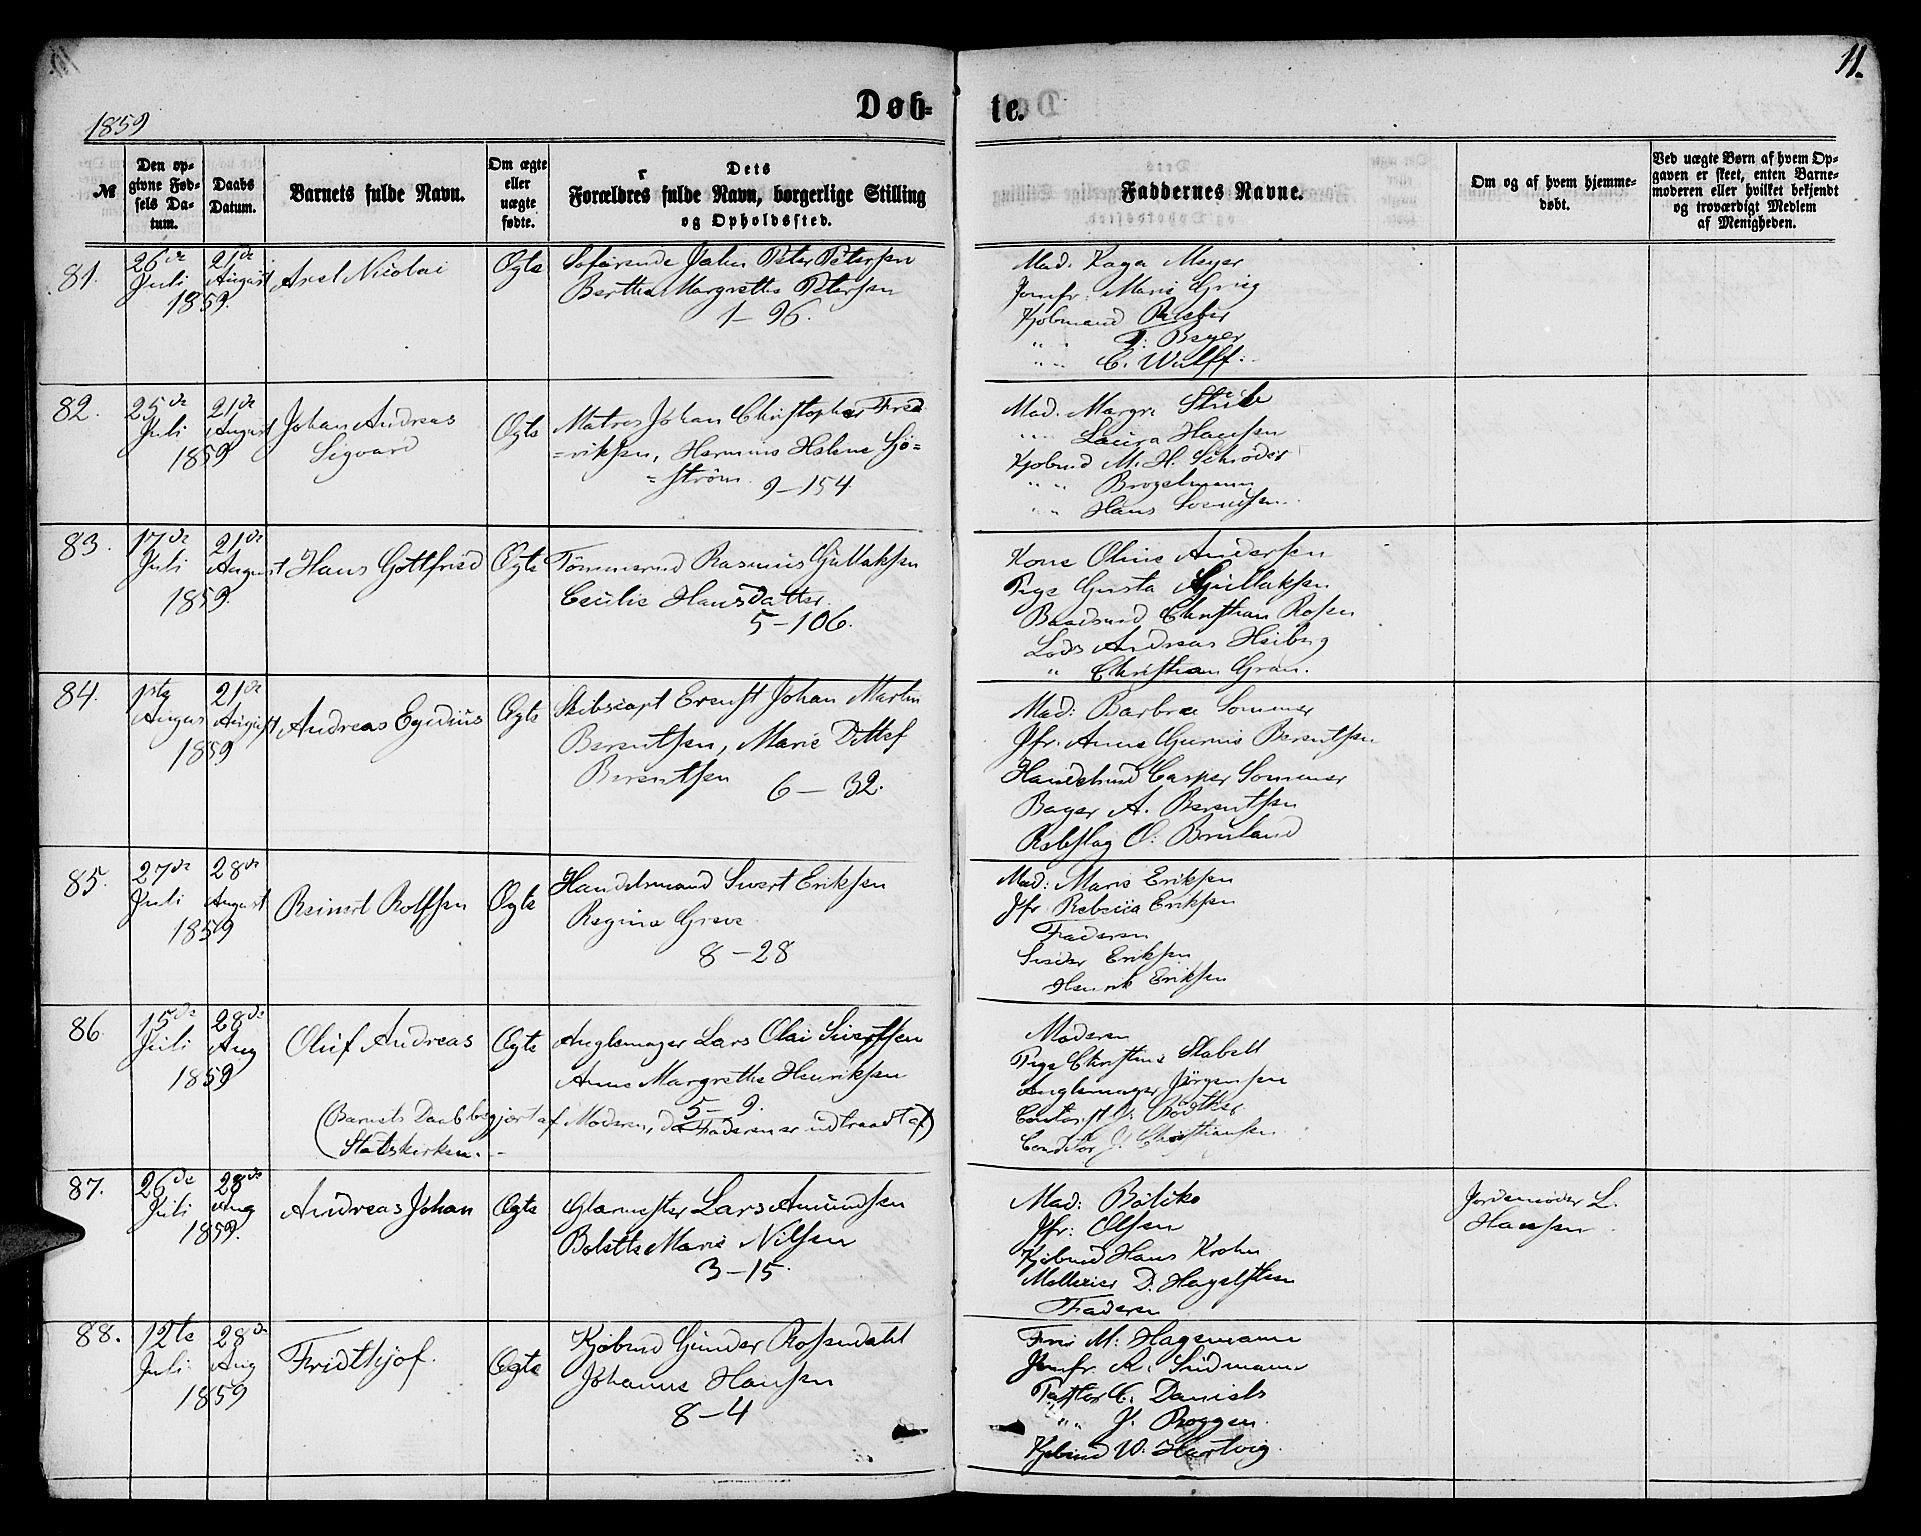 11.
1859
Døb-
te.
№
Den op-
givne Fød-
sels Da-
tum.
Daabs
Datum.
Barnets fulde Navn.
Om ægte
eller
uægte
fødte.
Dets
Forældres fulde Navn, borgerlige Stilling
og Opholdssted.
Faddernes Navne.
Om og af hvem hjemme-
døbt.
Ved uægte Børn af hvem Op-
gaven er skeet, enten Barne-
moderen eller hvilket bekjendt
og troværdigt Medlem
af Menigheden.
81.
26de
Juli
1859.
21de
August
Axel Nicolai
Ægte
Søfarende John Peter Petersen
Berthe Margrethe Petersen
1-96.
Mad. Kaya Meyer
Jomfr. Marie Grieg
Kjøbmand
" " Beyer
" " C. Wulff.
82.
25de
Juli
1859
21de
August
Johan Andreas
Sigvard
Ægte
Matros Johan Christopher Fred
=riksen, Hermine Helene Sjö=
=ström. 9-154
Mad. Margr. Stub
" " Laura Hansen
Kjøbmd M. H. Schrøder
" " Brøgelmann
" " Hans
83.
17de
Juli
1859.
21de
August
Hans Gottfried
Ægte
Tømmermd Rasmus Gullaksen
Cecilie Hansdatter.
5-106.
Kone Oline Andersen
Pige Gusta Gullaksen
Baadsmd Christian Rosen
Lods Andreas Heiberg
" Christian Gran.
84.
1ste
August
1859
21de
August
Andreas Egidius
Ægte
Skibscapt Ernst Johan Martin
Berentsen, Marie Ditlef
Berentsen 6-32.
Mad: Barbra Sommer
Jfr. Anne Gurine Berentsen
Handelsmd Casper Sommer
Bager A. Berentsen
Rebslag O: Bruland
85.
27de
Juli
1859
28de
August
Reinert Rolfsen
Ægte
Handelsmand Sivert Eriksen
Regine Greve
8-28
Mad: Marie Eriksen
Jfr Rebecca Eriksen
Faderen
Eriksen
Henrik Eriksen
86
15de
Juli
1859
28de
Aug
Oluf Andreas
Ægte
Anglemager Lars Olai Sivertsen
Anne Margrethe Henriksen
5-9.
(Barnets Daab begjert af Moderen, da Faderen er udtraadt af)
Statskirken.
Moderen
Pige Christine Stabell
Anglemager Jørgensen
Contorist
Conditor J. Christiansen
87.
26de
Juli
1859.
28de
Aug
Andreas Johan
Ægte
Glarmester Lars Amundsen
Bolette Marie Nilsen
3-15.
Mad: Bølcke
Jfr: Olsen
Kjøbmd Hans Krohn
D. Hagelsteen
Faderen
Jordemoder L.
Hansen
88.
12te
Juli
1859
28de
Aug
Fridthjof.
Ægte
Kjøbmd Gunder Rosendahl
Johanne Hansen
8-4
Fru M: Hagemann
Jomfr A. Sundmann
C. Daniels
" " J. Roggen.
Kjøbmd W. Hartvig.